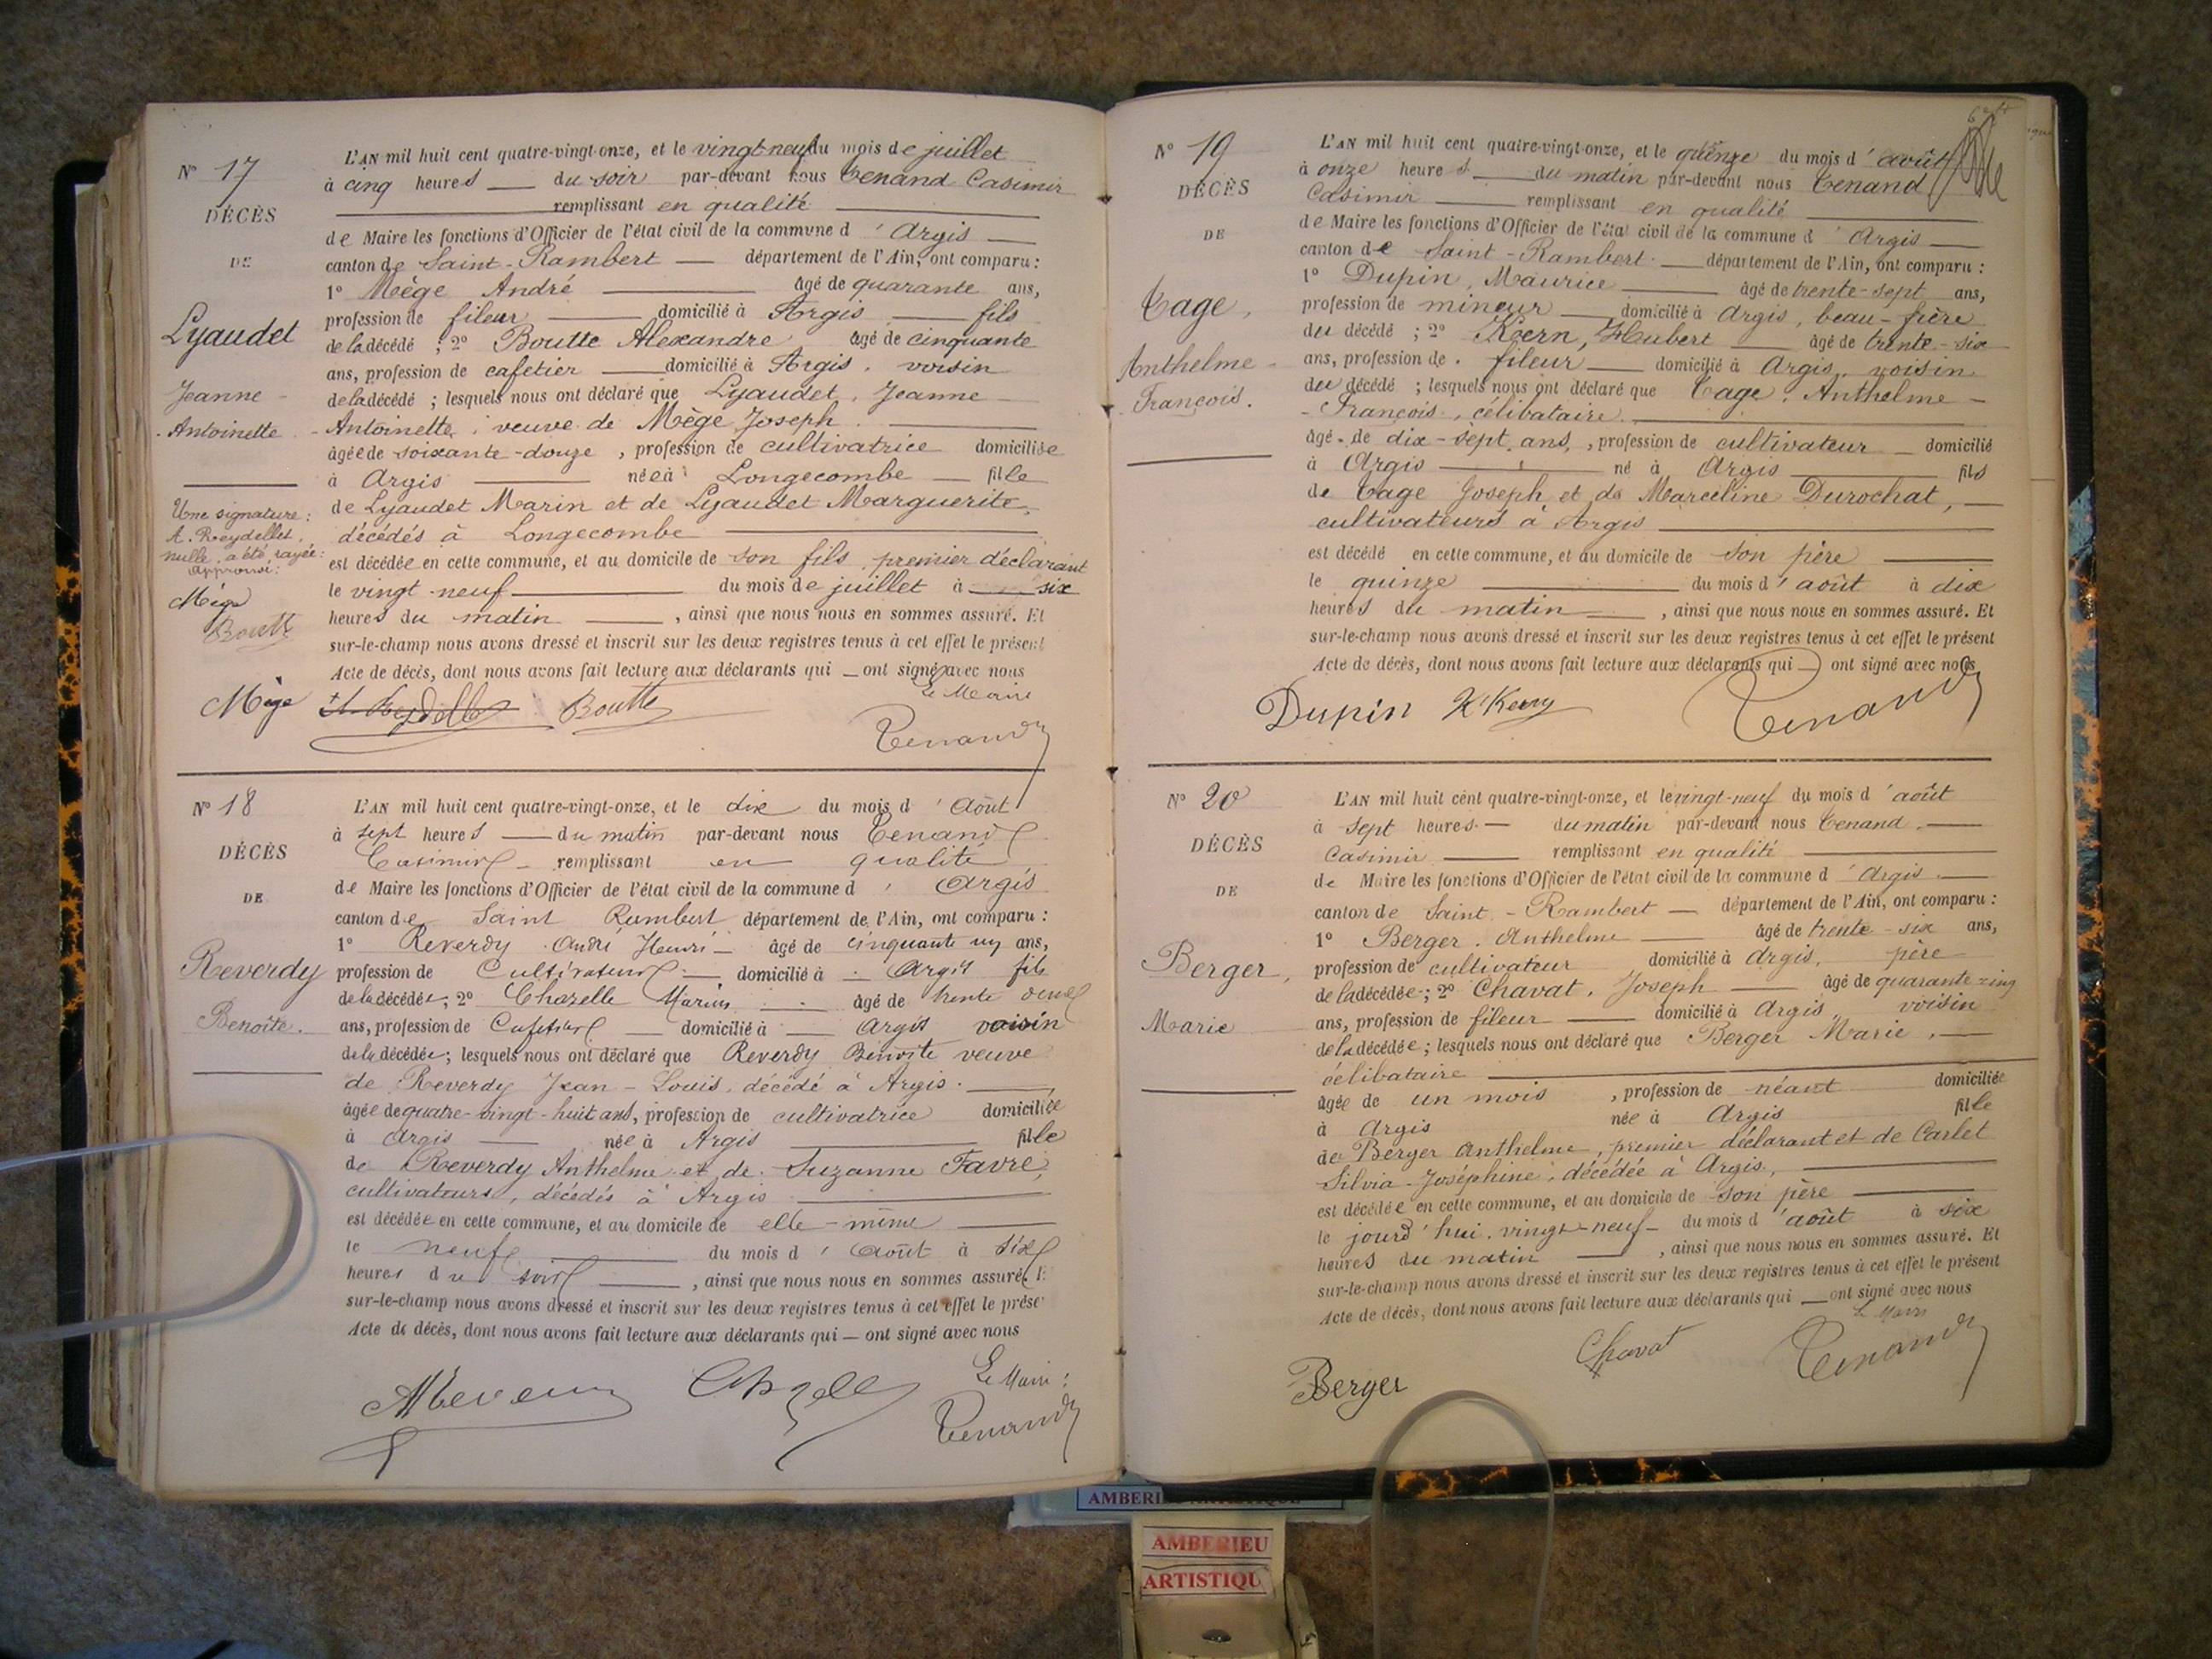 N° 17
DÉCÈS
DE
Lyaudet
Jeanne -
Antoinette
Une signature :
A. Reydellet,
nulle, a été rayée :
approuvé :
Mège
Boutte
L'AN mil huit cent quatre-vingt-onze, et le vingt-neuf du mois de juillet
à cinq heures du soir par-devant nous Tenand Casimir
remplissant en qualité
de Maire les fonctions d'Officier de l'état civil de la commune d'Argis
canton de Saint-Rambert département de l'Ain, ont comparu :
1° Mège André âgé de quarante ans,
profession de fileur domicilié à Argis fils
de la décédé ; 2° Boutte Alexandre âgé de cinquante
ans, profession de cafetier domicilié à Argis, voisin
de la décédé ; lesquels nous ont déclaré que Lyaudet, Jeanne -
Antoinette, veuve de Mège Joseph.
âgée de soixante-douze, profession de cultivatrice domiciliée
à Argis née à Longecombe fille
de Lyaudet Marin et de Lyaudet Marguerite,
décédés à Longecombe
est décédée en cette commune, et au domicile de son fils, premier déclarant
le vingt-neuf du mois de juillet à six
heures du matin, ainsi que nous nous en sommes assuré. Et
sur-le-champ nous avons dressé et inscrit sur les deux registres tenus à cet effet le présent
Acte de décès, dont nous avons fait lecture aux déclarants qui ont signé avec nous
Le Maire
Mège A. Reydellet Boutte
Tenand
N° 18
DÉCÈS
DE
Reverdy
Benoîte.
L'AN mil huit cent quatre-vingt-onze, et le dix du mois d'Août
à sept heures du matin par-devant nous Tenand
Casimir remplissant en qualité
de Maire les fonctions d'Officier de l'état civil de la commune d'Argis
canton de Saint Rambert département de l'Ain, ont comparu :
1° Reverdy André Henri âgé de cinquante un ans,
profession de Cultivateur domicilié à Argis fils
de la décédée ; 2° Chazelle Marius âgé de trente deux
ans, profession de Cafetier domicilié à Argis voisin
de la décédée ; lesquels nous ont déclaré que Reverdy Benoîte veuve
de Reverdy Jean-Louis, décédé à Argis.
âgée de quatre-vingt-huit ans, profession de cultivatrice domiciliée
à Argis née à Argis fille
de Reverdy Anthelme et de Suzanne Favre,
cultivateurs, décédés à Argis
est décédée en cette commune, et au domicile de elle-même
le neuf du mois d'Août à six
heures du soir, ainsi que nous nous en sommes assuré. E
sur-le-champ nous avons dressé et inscrit sur les deux registres tenus à cet effet le prése
Acte de décès, dont nous avons fait lecture aux déclarants qui — ont signé avec nous
Le Maire :
Tenand
N° 19
DÉCÈS
DE
Tage,
Anthelme -
François.
L'AN mil huit cent quatre-vingt-onze, et le quinze du mois d'août
à onze heures du matin par-devant nous Tenand
Casimir remplissant en qualité
de Maire les fonctions d'Officier de l'état civil de la commune d'Argis
canton de Saint-Rambert département de l'Ain, ont comparu :
1° Dupin, Maurice âgé de trente-sept ans,
profession de mineur domicilié à Argis, beau-frère
du décédé ; 2° Kern, Hubert âgé de trente-six
ans, profession de fileur domicilié à Argis, voisin
du décédé ; lesquels nous ont déclaré que Tage, Anthelme -
François, célibataire
âgé de dix-sept ans, profession de cultivateur domicilié
à Argis né à Argis fils
de Tage Joseph et de Marceline Durochat,
cultivateurs à Argis
est décédé en cette commune, et au domicile de son père
le quinze du mois d'août à dix
heures du matin, ainsi que nous nous en sommes assuré. Et
sur-le-champ nous avons dressé et inscrit sur les deux registres tenus à cet effet le présent
Acte de décès, dont nous avons fait lecture aux déclarants qui — ont signé avec nous
Dupin Tenand
N° 20
DÉCÈS
DE
Berger,
Marie
L'AN mil huit cent quatre-vingt-onze, et le vingt-neuf du mois d'août
à sept heures du matin par-devant nous Tenand
Casimir remplissant en qualité
de Maire les fonctions d'Officier de l'état civil de la commune d'Argis
canton de Saint-Rambert département de l'Ain, ont comparu :
1° Berger, Anthelme âgé de trente-six ans,
profession de cultivateur domicilié à Argis, père
de la décédée ; 2° Chavat, Joseph âgé de quarante-cinq
ans, profession de fileur domicilié à Argis, voisin
de la décédée ; lesquels nous ont déclaré que Berger Marie,
célibataire
âgée de un mois, profession de néant domiciliée
à Argis née à Argis fille
de Berger Anthelme, premier déclarant et de Carlet
Silvia-Joséphine, décédée à Argis,
est décédée en cette commune, et au domicile de son père
le jourd'hui vingt-neuf du mois d'août à six
heures du matin, ainsi que nous nous en sommes assuré. Et
sur-le-champ nous avons dressé et inscrit sur les deux registres tenus à cet effet le présent
Acte de décès, dont nous avons fait lecture aux déclarants qui — ont signé avec nous
Le Maire
Berger Chavat Tenand
AMBERIEU
ARTISTIQU